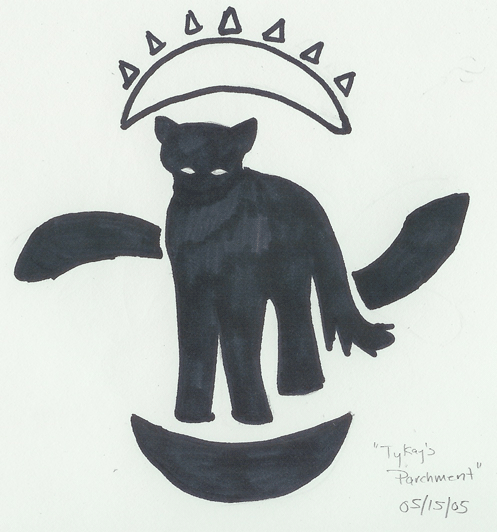 "TyKay's
Parchment"
05/15/05